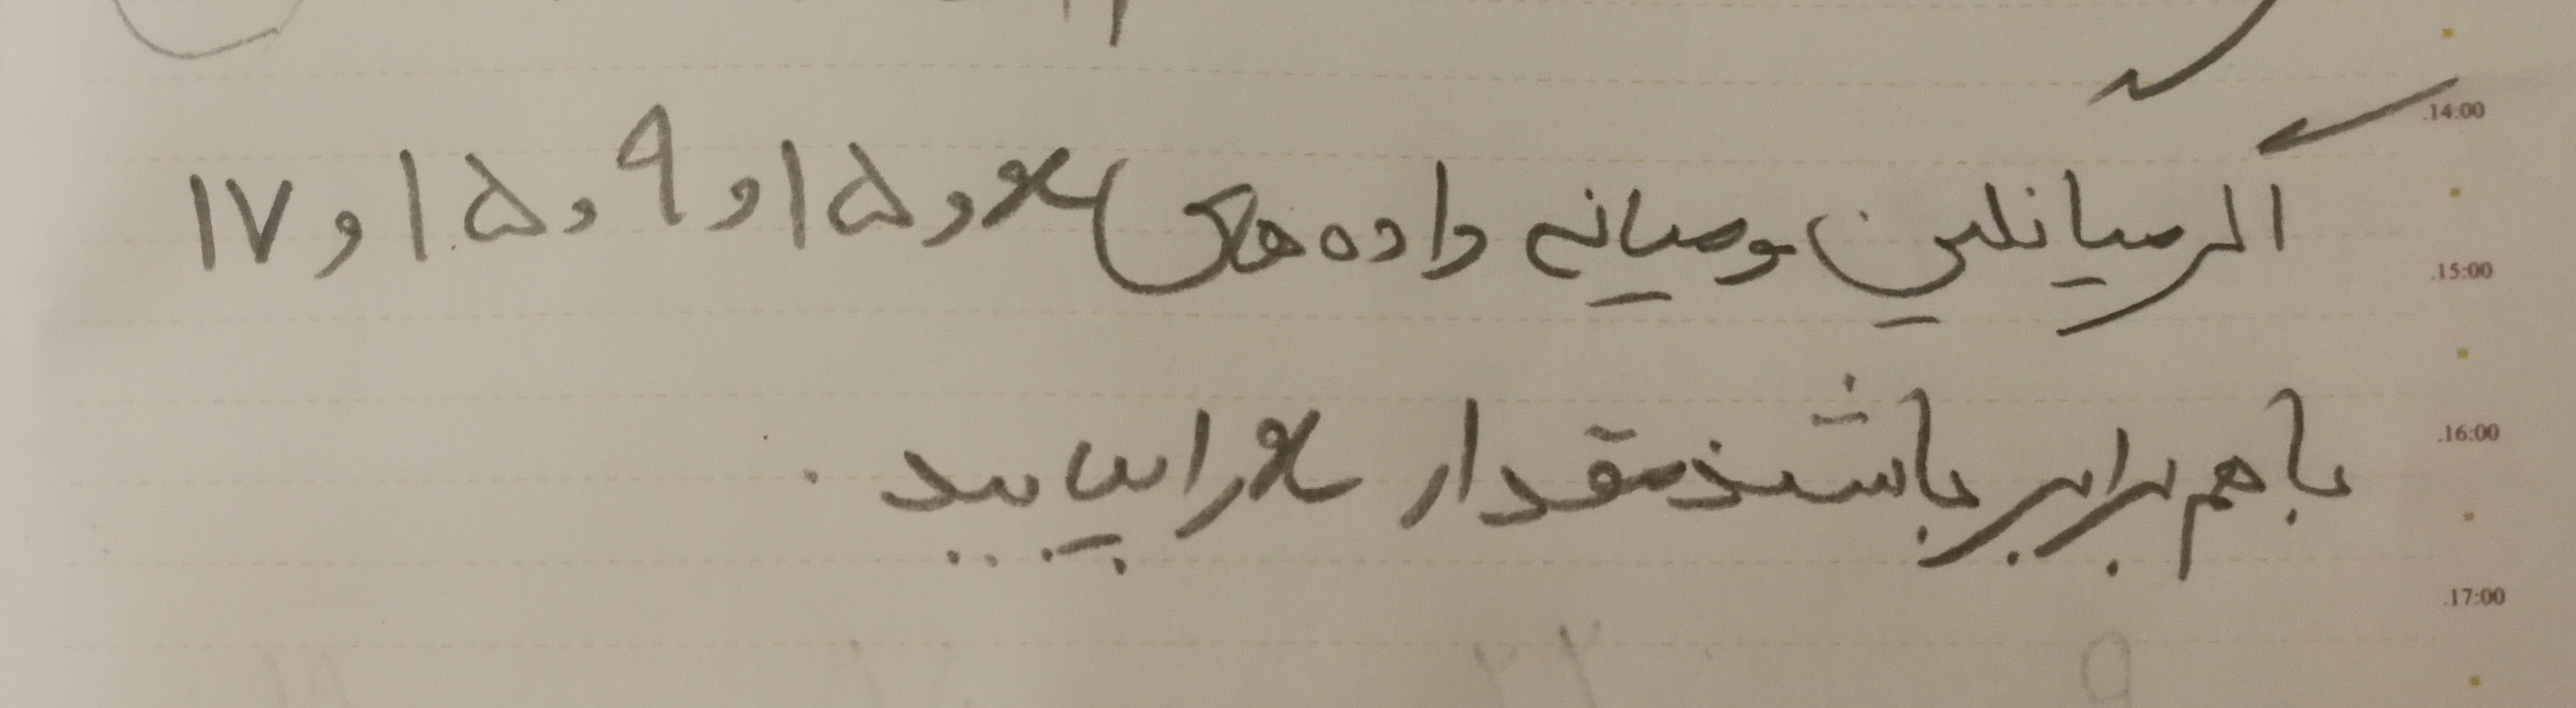 اگر میانگین و میانه داده های x و ۱۵ و ۹ و ۱۵ و ۱۷
با هم برابر باشند مقدار x را بیابید.
.14:00
.15:00
.16:00
.17:00